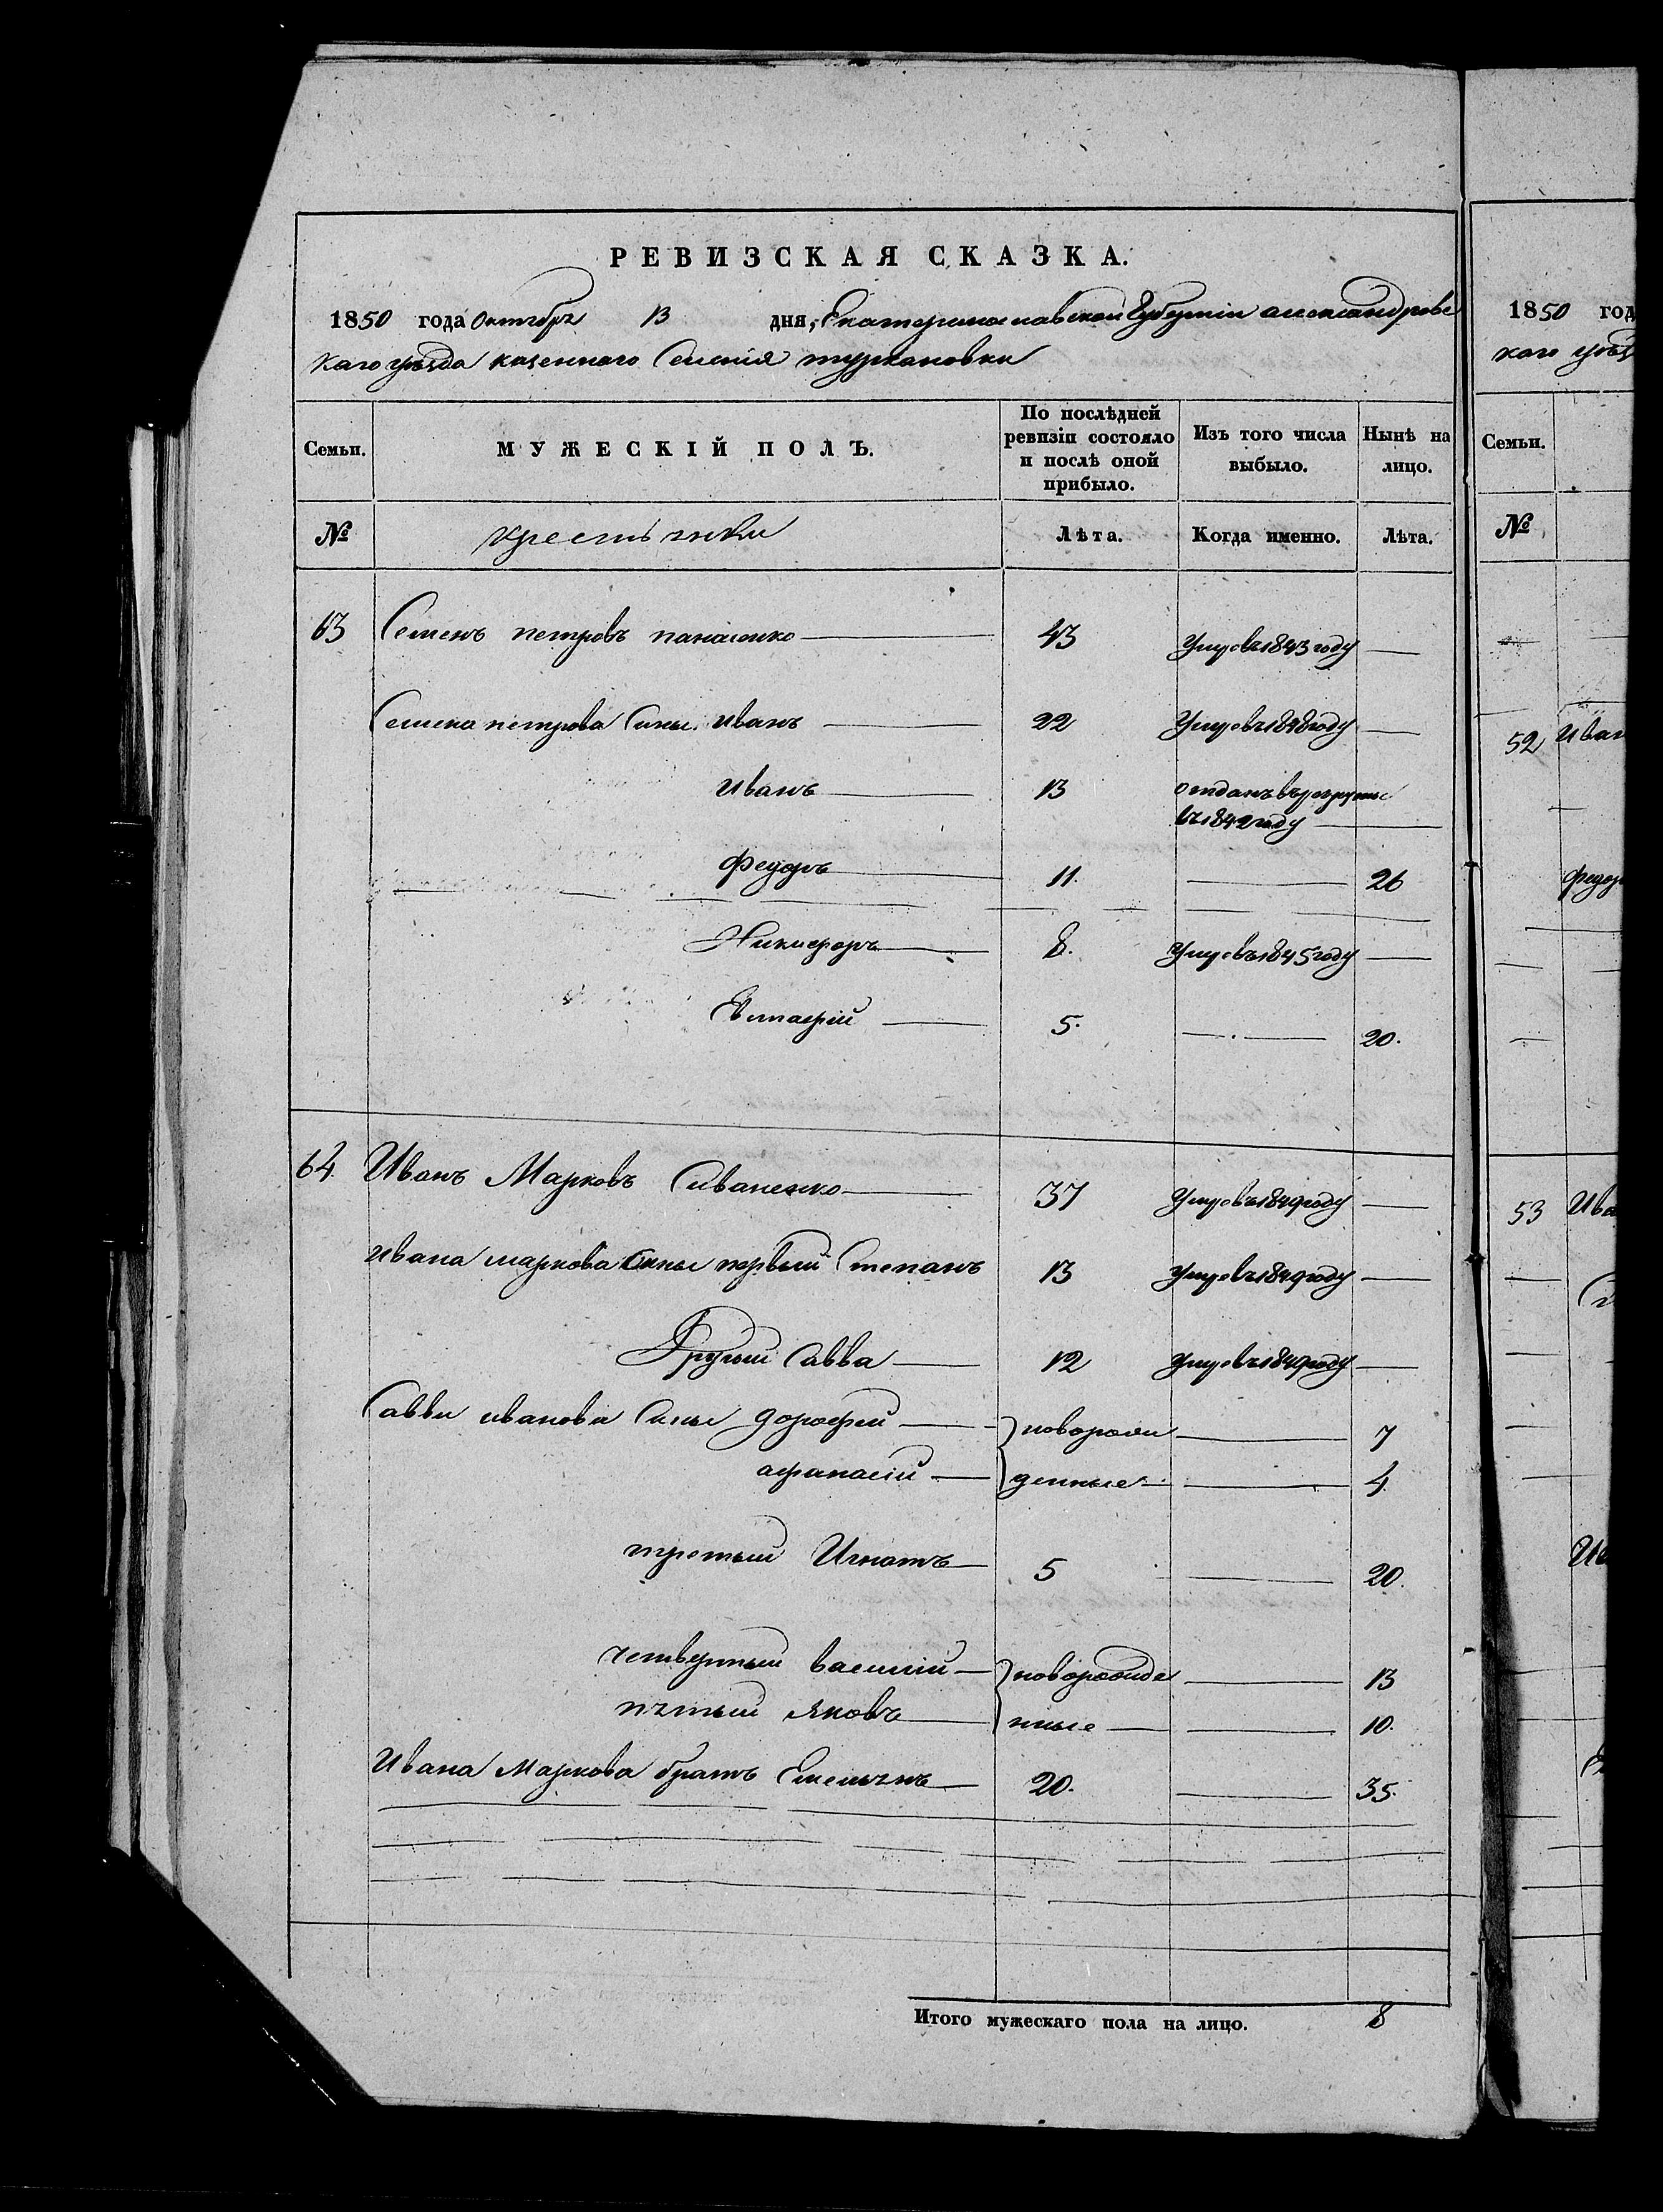 РЕВИЗСКАЯ СКАЗКА.
1850 года Октября 13 дня, Екатеринославской Губернии александровс
каго уѣзда казенного Селения туркановки
Семьи.
МУЖЕСКІЙ ПОЛЪ.
По послѣдней ревизіи состояло и послѣ оной прибыло.
Изъ того числа выбыло.
Нынѣ на лицо.
№
крестьянъ
Лѣта.
Когда именно.
Лѣта.
63 Семенъ петровъ панасенко 43 Умровъ 1843 году
Семена петрова Сыны. иванъ 22 Умровъ 1848 году
иванъ 13 отданъ въ рекруты
въ 1842 году
федоръ 11. 26
Никифоръ 8. Умровъ 1845 году
Евстафий 5. 20.
64. Иванъ Марковъ Сиваненко 37 Умровъ 1849 году
ивана маркова Сыны первый Степанъ 13 Умровъ 1849 году
Другий Савва 12 Умровъ 1849 году
Савви иванова Сыны дорофей новорож 7
афанасий денные 4
третый Игнатъ 5 20.
четвертый василий новорожде 13
пятый яковъ нные 10.
Ивана Маркова братъ Емельянъ 20. 35.
Итого мужескаго пола на лицо. 8
1850 год
каго уѣз
Семьи.
№
52 Иван
федор
53 Ива